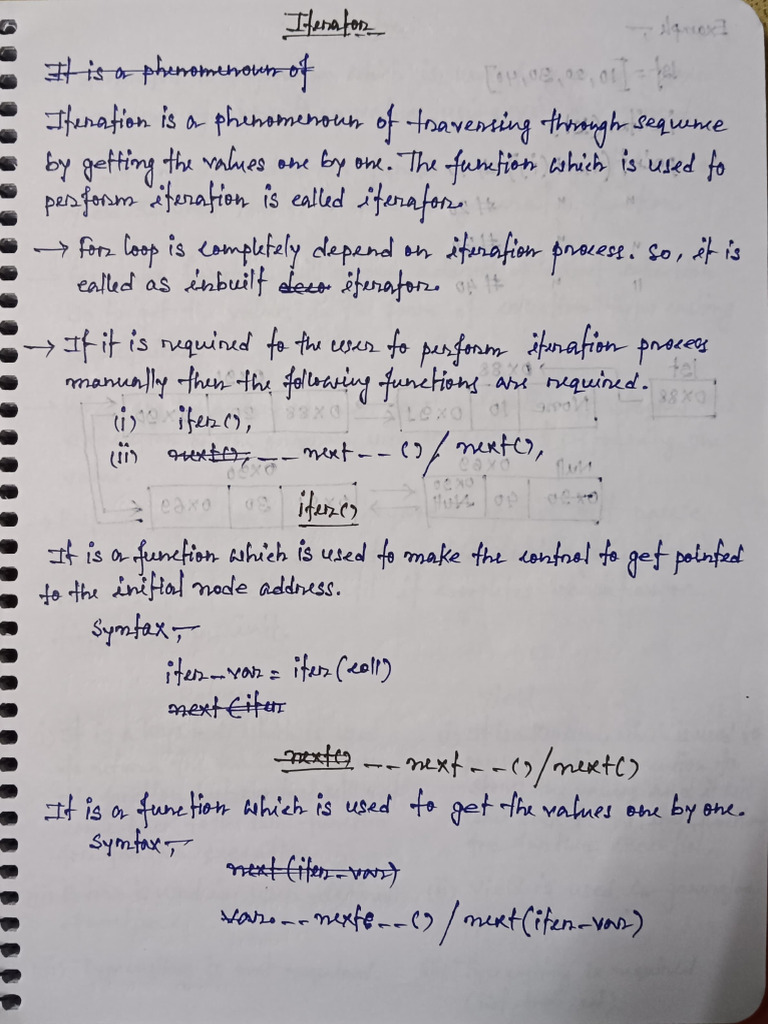 Iterator
It is a phenomenoun of
Iteration is a phenomenoun of traversing through sequence
by getting the values one by one. The function which is used to
perform iteration is called iterator.
→ For loop is completely depend on iteration process. So, it is
called as inbuilt deco iterator.
→ If it is required to the user to perform iteration process
manually then the following functions are required.
(i) iter(),
(ii) next(), __next__()/next(),
iter()
It is a function which is used to make the control to get pointed
to the initial node address.
Syntax:-
iter_var = iter(coll)
next(iter
next() __next__()/next()
It is a function which is used to get the values one by one.
Syntax:-
next(iter_var)
var.__next__()/next(iter_var)